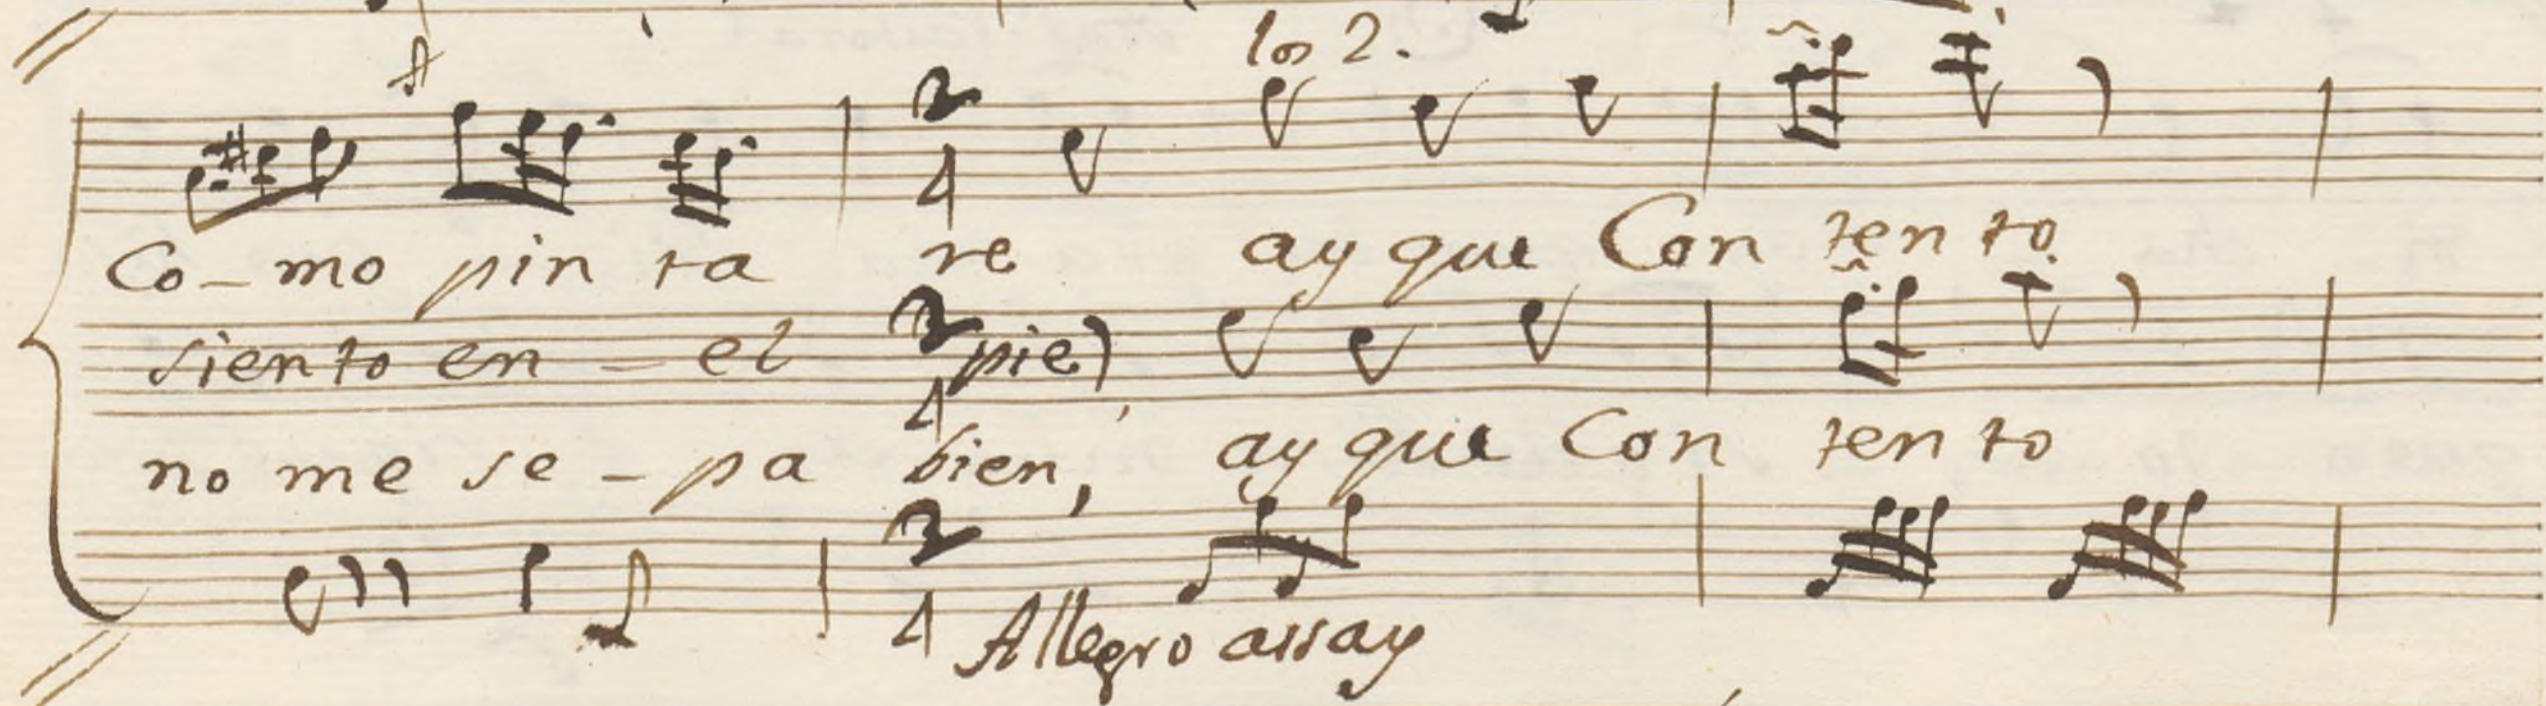 los 2.
2
4
Co-mo pin ta re ay que Con ten to
2
4
siento en - el pie)
no me se-pa bien, ay que Con ten to
2
4
Allegro assay